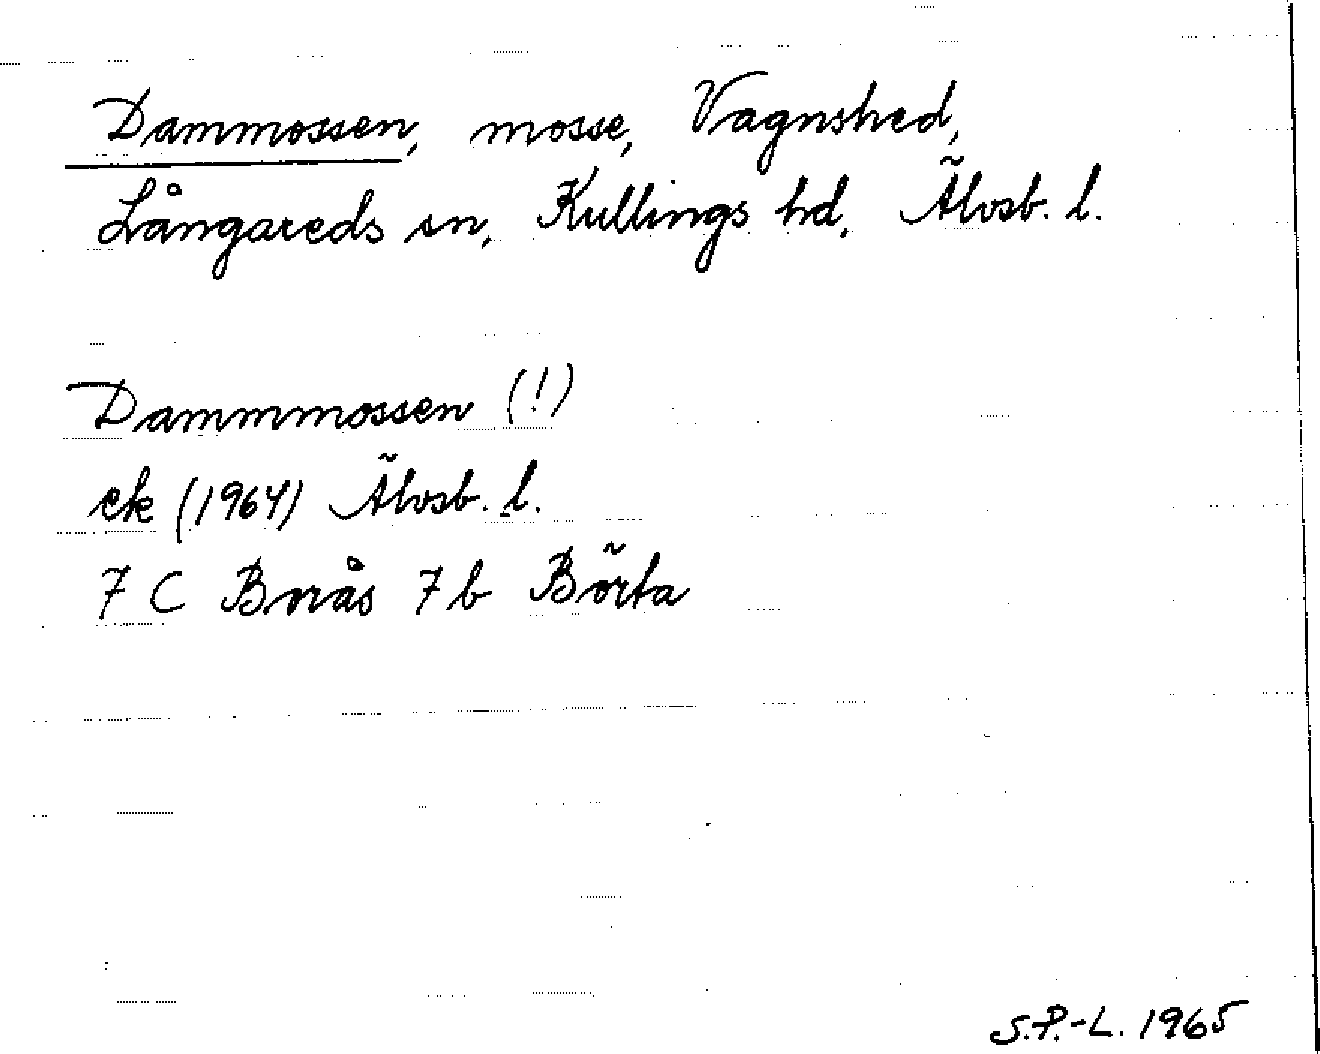 Dammossen, mosse, Vagnshed,
Långareds sn, Kullings hd, Älvsb. l.
Dammmossen (!)
ek (1964) Älvsb. l.
7 C Borås 7 b Börta
S.P.-L. 1965